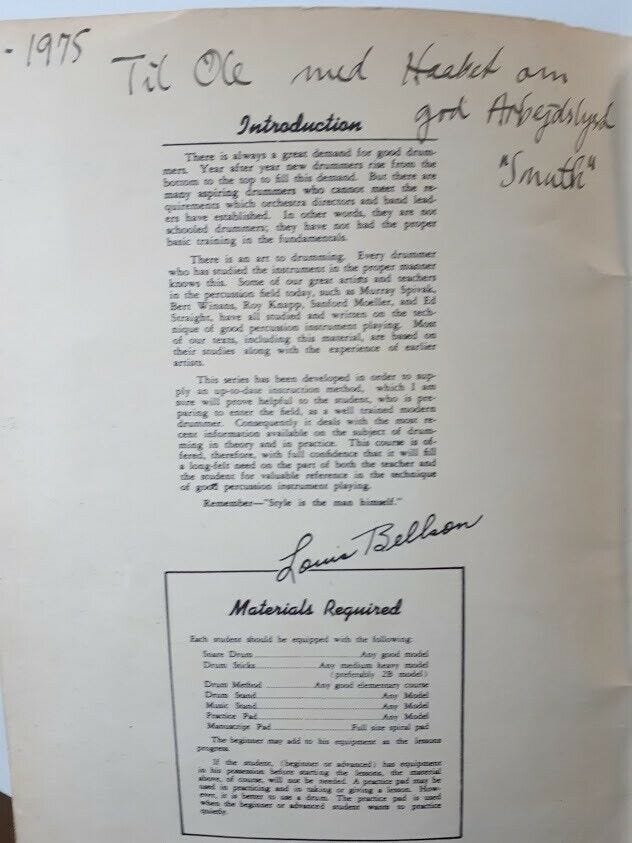 - 1975
Til Ole med Haabet om
god Arbejdslyst
"Smuth"
Introduction
There is always a great demand for good drum-
mers. Year after year new drummers rise from the
bottom to the top to fill this demand. But there are
many aspiring drummers who cannot meet the re-
quirements which orchestra directors and band lead-
ers have established. In other words, they are not
schooled drummers; they have not had the proper
basic training in the fundamentals.
There is an art to drumming. Every drummer
who has studied the instrument in the proper manner
knows this. Some of our great artists and teachers
in the percussion field today, such as Murray Spivak,
Bert Winans, Roy Knapp, Sanford Moeller, and Ed
Straight, have all studied and written on the tech-
nique of good percussion instrument playing. Most
of our texts, including this material, are based on
their studies along with the experience of earlier
artists.
This series has been developed in order to sup-
ply an up-to-date instruction method, which I am
sure will prove helpful to the student, who is pre-
paring to enter the field, as a well trained modern
drummer. Consequently it deals with the most re-
cent information available on the subject of drum-
ming in theory and in practice. This course is of-
fered, therefore, with full confidence that it will fill
a long-felt need on the part of both the teacher and
the student for valuable reference in the technique
of good percussion instrument playing.
Remember—"Style is the man himself."
Louis Bellson
Materials Required
Each student should be equipped with the following:
Snare Drum Any good model
Drum Sticks Any medium heavy model
(preferably 2B model)
Drum Method Any good elementary course
Drum Stand Any Model
Music Stand Any Model
Practice Pad Any Model
Manuscript Pad Full size spiral pad
The beginner may add to his equipment as the lessons
progress.
If the student, (beginner or advanced) has equipment
in his possession before starting the lessons, the material
above, of course, will not be needed. A practice pad may be
used in practicing and in taking or giving a lesson. How-
ever, it is better to use a drum. The practice pad is used
when the beginner or advanced student wants to practice
quietly.